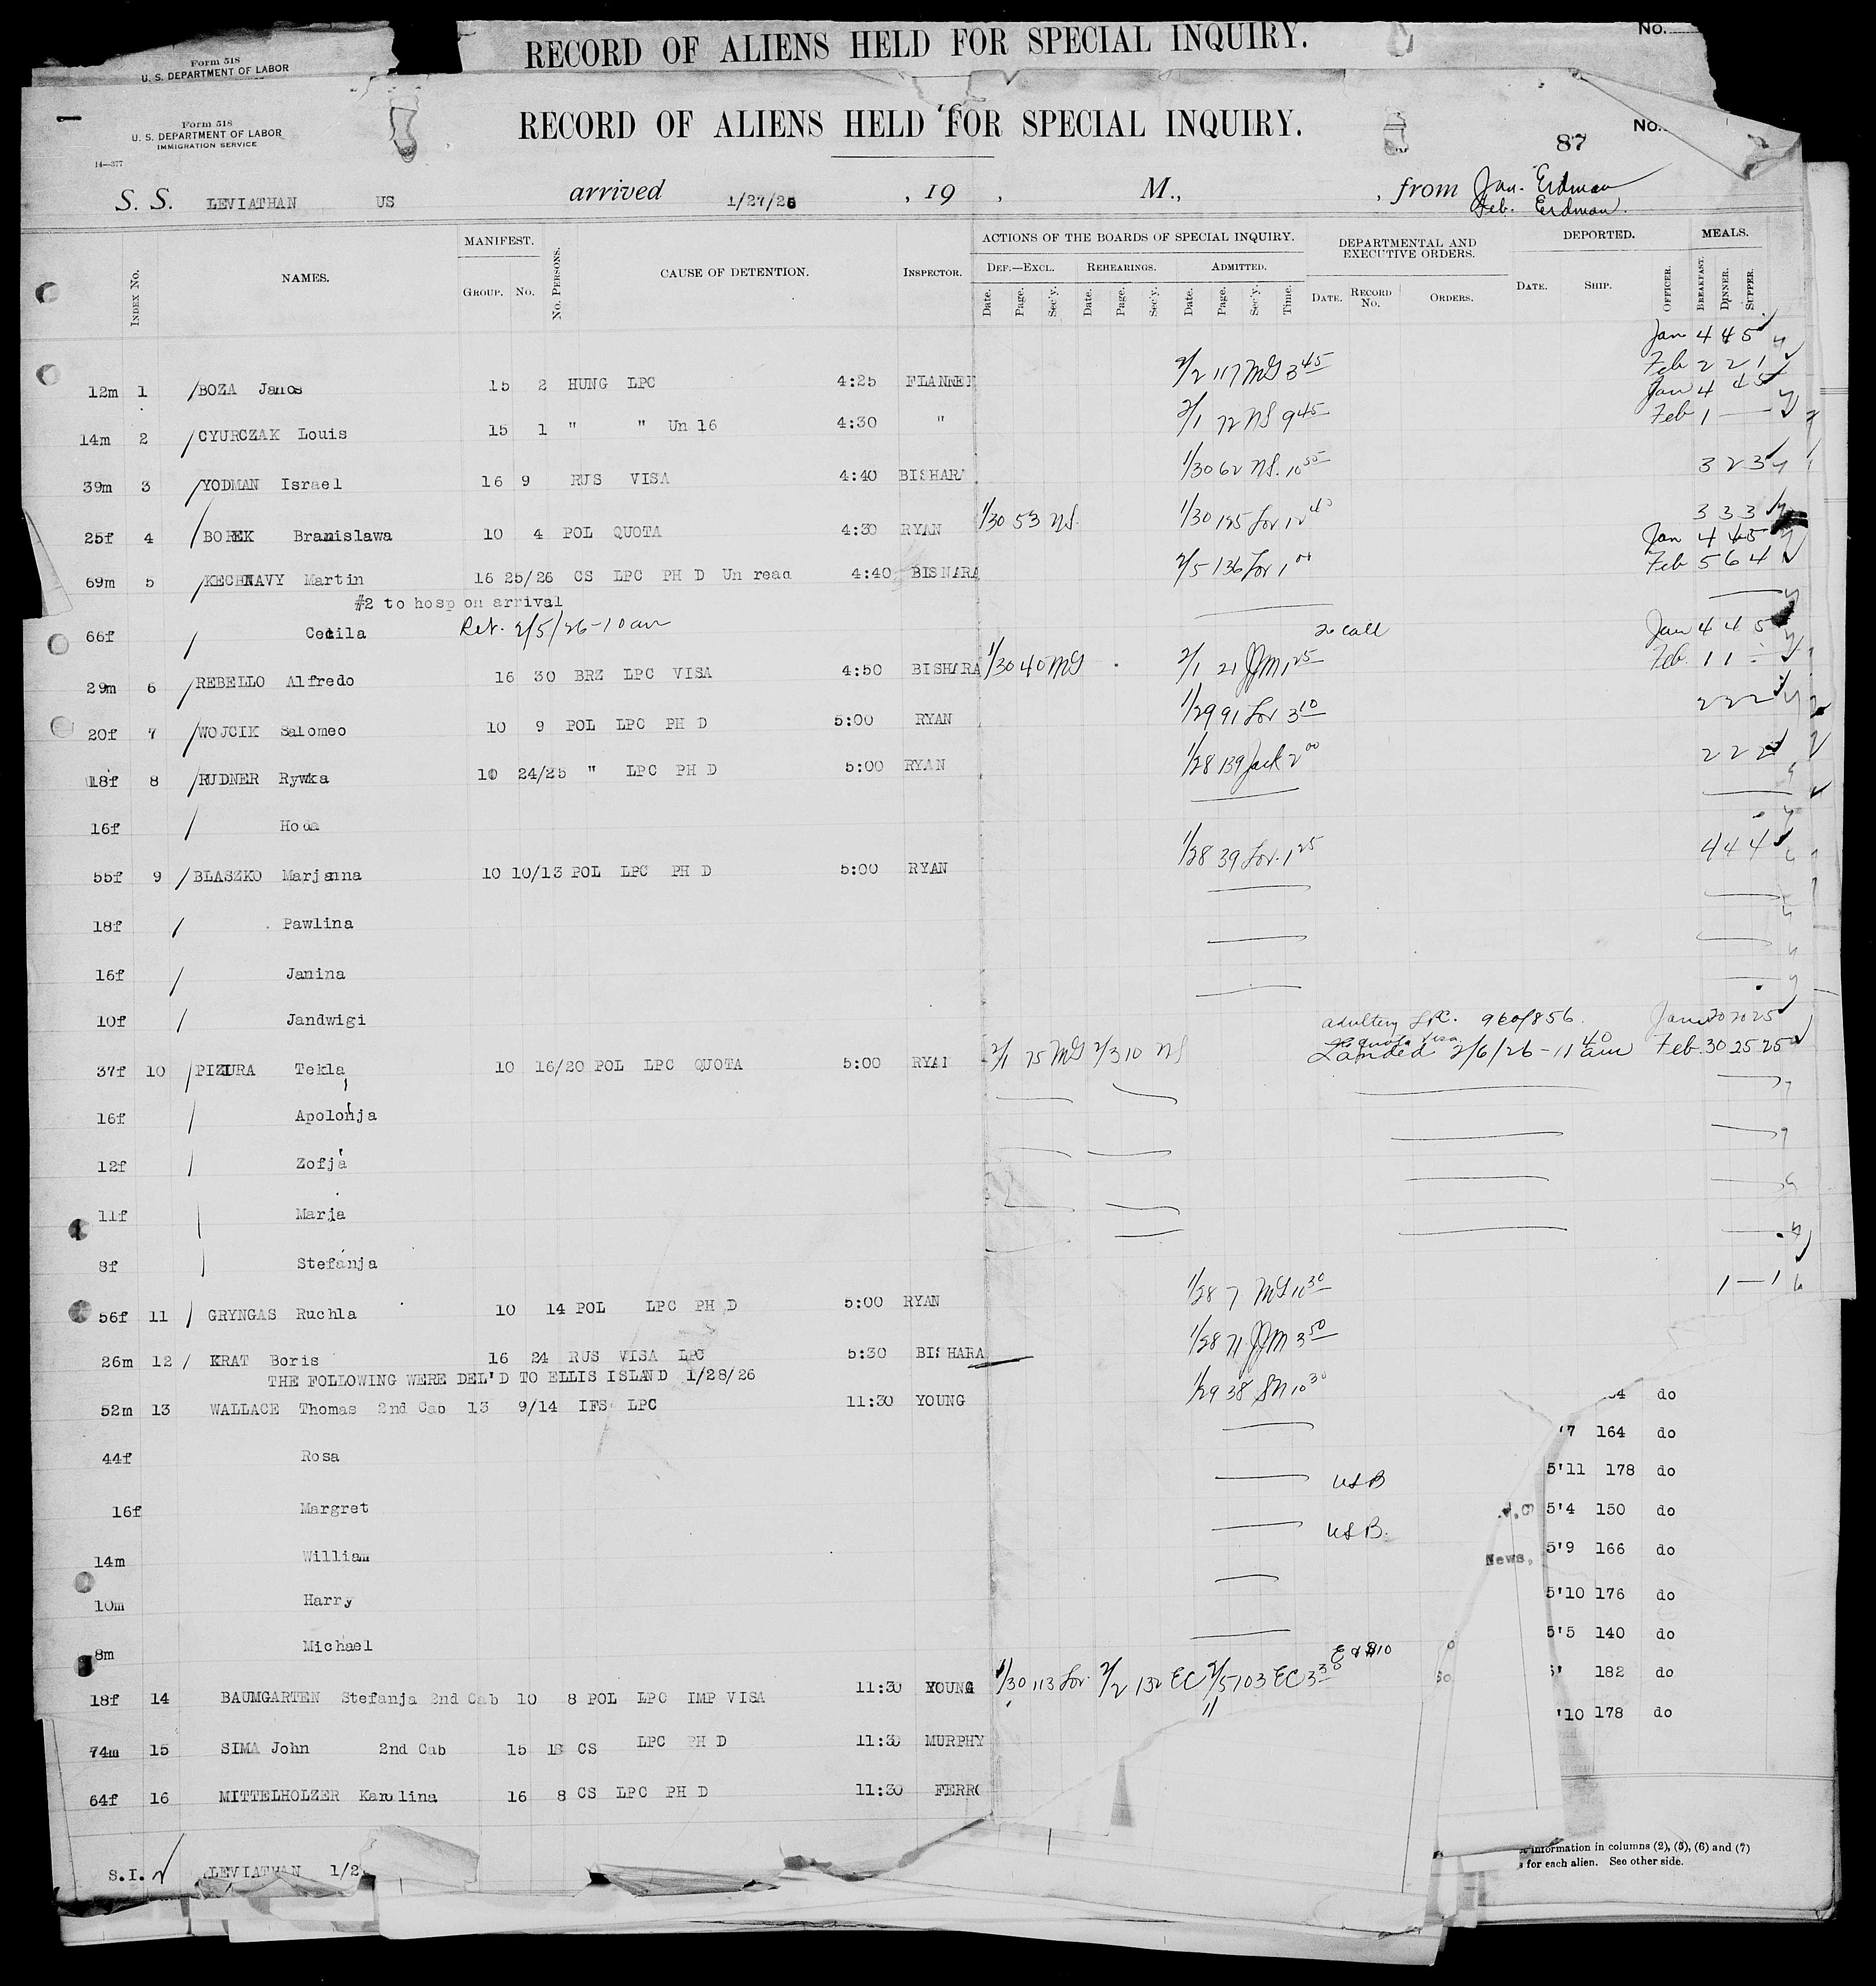 Form 518
U. S. DEPARTMENT OF LABOR
RECORD OF ALIENS HELD FOR SPECIAL INQUIRY.
No.
Form 518
U. S. DEPARTMENT OF LABOR
IMMIGRATION SERVICE
14—377
RECORD OF ALIENS HELD FOR SPECIAL INQUIRY.
No.
87
S. S. LEVIATHAN US arrived 1/27/26 , 19 , M., , from Jan. Erdman
Feb. Erdman.
INDEX No. NAMES. MANIFEST. GROUP. No. No. PERSONS. CAUSE OF DETENTION. INSPECTOR. ACTIONS OF THE BOARDS OF SPECIAL INQUIRY. DEPARTMENTAL AND EXECUTIVE ORDERS. DEPORTED. MEALS.
DEF.—EXCL. REHEARINGS. ADMITTED.
Date. Page. Sec'y. Date. Page. Sec'y. Date. Page. Sec'y. Time. DATE. RECORD No. ORDERS. DATE. SHIP. OFFICER. BREAKFAST. DINNER. SUPPER.
Jan 4 4 5
12m 1 BOZA Janos 15 2 HUNG LPC 4:25 FLANNE 2/2 117 MG 3 45 Feb 2 2 1
Jan 4 4 5
14m 2 CYURCZAK Louis 15 1 " " Un 16 4:30 " 2/1 72 NS 9 45 Feb 1 —
39m 3 YODMAN Israel 16 9 RUS VISA 4:40 BISHARA 1/30 62 NS. 10 55 3 2 3
25f 4 BOREK Branislawa 10 4 POL QUOTA 4:30 RYAN 1/30 53 NS. 1/30 125 Lor 12 40 3 3 3
Jan 4 4 5
69m 5 KECHNAVY Martin 16 25/26 CS LPC PH D Un read 4:40 BISHARA 2/5 136 Lor 1 00 Feb 5 6 4
#2 to hosp on arrival
66f Cecila Ret. 2/5/26-10 am
to call
Jan 4 4 5
29m 6 REBELLO Alfredo 16 30 BRZ LPC VISA 4:50 BISHARA 1/30 40 MG 2/1 21 JJM 1 25 Feb. 1 1 —
20f 7 WOJCIK Salomeo 10 9 POL LPC PH D 5:00 RYAN 1/29 91 Lor 3 10 2 2 2
18f 8 RUDNER Rywka 10 24/25 " LPC PH D 5:00 RYAN 1/28 139 Jack 2 00 2 2 2
16f Hoda
55f 9 BLASZKO Marjanna 10 10/13 POL LPC PH D 5:00 RYAN 1/28 39 Lor. 1 25 4 4 4
18f Pawlina
16f Janina
10f Jandwigi
adultery LPC. 960/856. Jan 20 20 25
quota Visa
37f 10 PIZURA Tekla 10 16/20 POL LPC QUOTA 5:00 RYAN 2/1 75 MG 2/3 10 NS Landed 2/6/26-11 40 am Feb. 30 25 25
16f Apolonja
12f Zofja
11f Marja
8f Stefanja
56f 11 GRYNGAS Ruchla 10 14 POL LPC PH D 5:00 RYAN 1/28 7 MG 10 30 1 — 1
26m 12 KRAT Boris 16 24 RUS VISA LPC 5:30 BISHARA 1/28 71 JJM 3 50
THE FOLLOWING WERE DEL'D TO ELLIS ISLAND 1/28/26
52m 13 WALLACE Thomas 2nd Cab 13 9/14 IFS LPC 11:30 YOUNG 1/29 38 SN 10 30
44f Rosa
16f Margret USB
14m William USB.
10m Harry
8m Michael
18f 14 BAUMGARTEN Stefanja 2nd Cab 10 8 POL LPC IMP VISA 11:30 YOUNG 1/30 113 Lor. 2/2 132 EC 2/5 103 EC 3 30
74m 15 SIMA John 2nd Cab 15 18 CS LPC PH D 11:30 MURPHY
64f 16 MITTELHOLZER Karolina 16 8 CS LPC PH D 11:30 FERRO
S.I. LEVIATHAN 1/2
4 do
'7 164 do
5'11 178 do
5'4 150 do
News, 5'9 166 do
5'10 176 do
5'5 140 do
182 do
'10 178 do
information in columns (2), (5), (6) and (7)
for each alien. See other side.